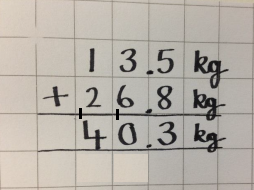 13.5 kg
+ 26.8 kg
40.3 kg